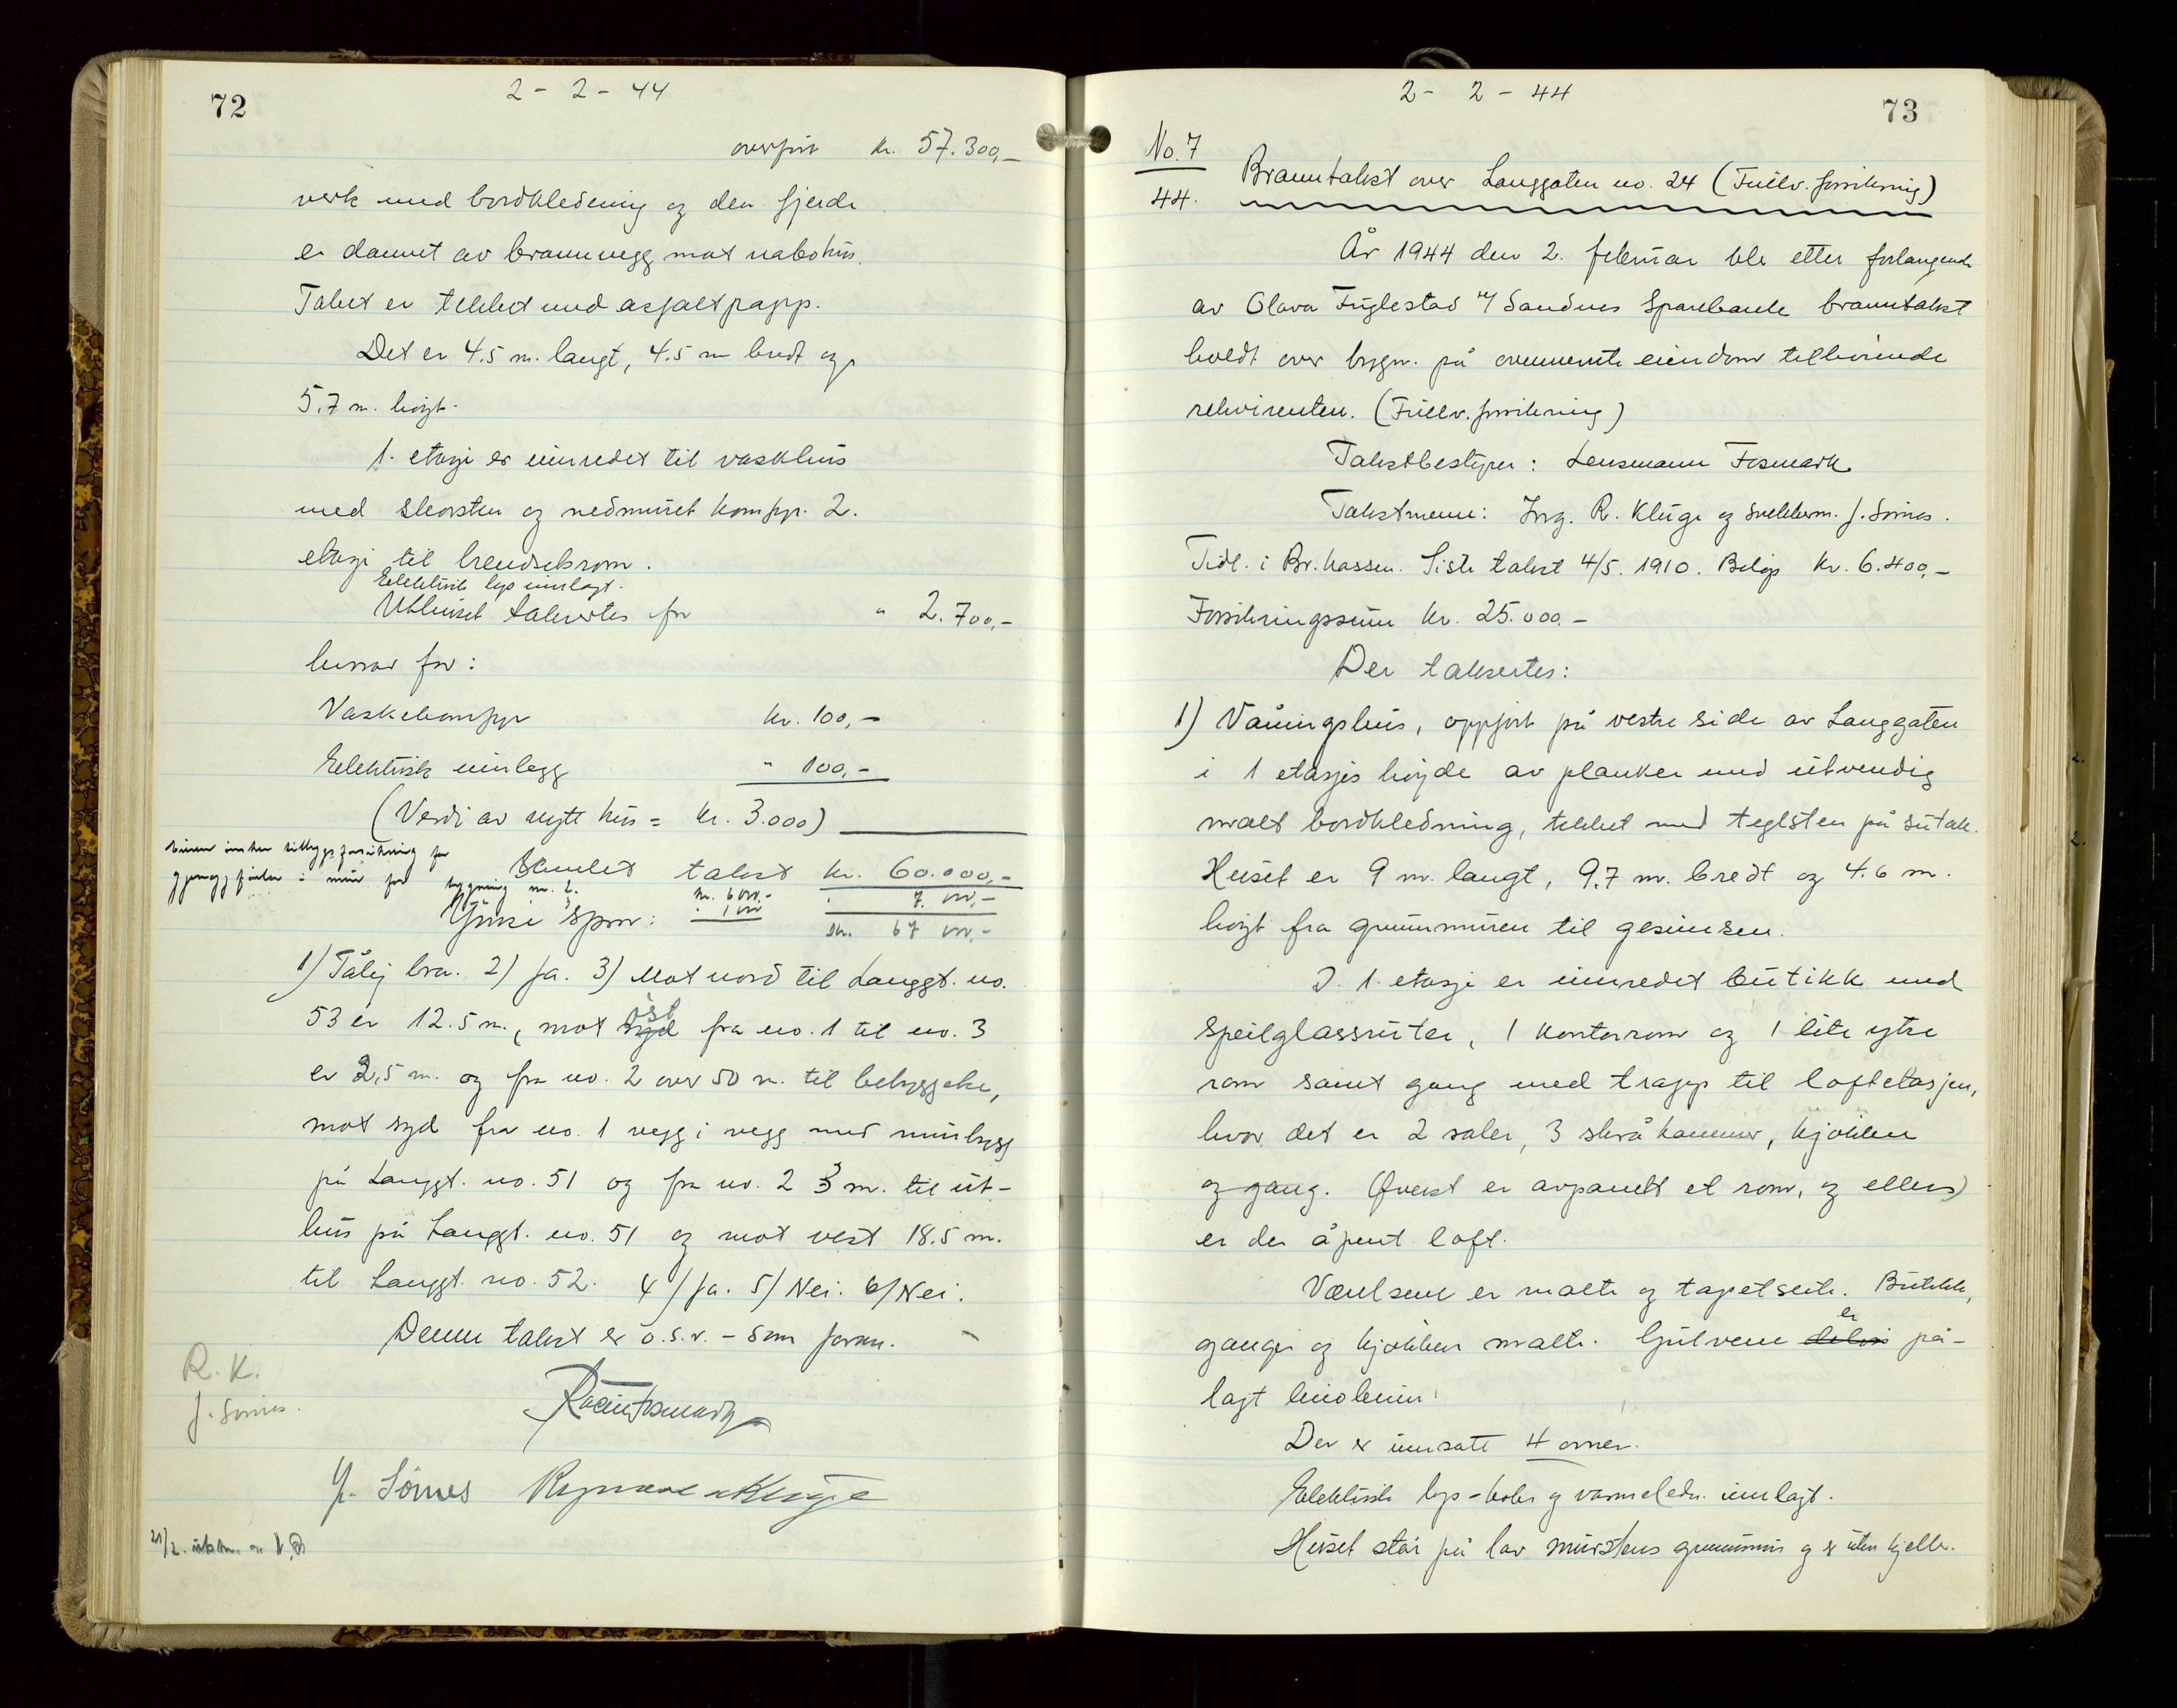 72
2 - 2 - 44
overført kr. 57.300,-
verk med bordkledning og den fjerde
er dannet av brannvegg mot nabohus.
Taket er tekket med asfaltpapp.
Det er 4.5 m. langt, 4.5 m bredt og
5.7 m. høgt.
1. etasje er innredet til vaskhus
med skorsten og nedmuret kompe. 2.
etasje til brendselsrom.
Elektrisk lys innlagt.
Uthuset takseres for " 2.700,-
hvorav for:
Vaskekompe kr. 100,-
Elektrisk innlegg " 100,-
(Verdi av nytt hus = kr. 3.000)
Samlet takst kr. 60.000,-
bygning nr. 2.
67
1) Tålig bra. 2) Ja. 3) Mot nord til Langgt. no.
53 er 12.5 m., mot syd øst fra no. 1 til no. 3
er 2,5 m. og fra no. 2 over 50 m. til bebyggelse,
mot syd fra no. 1 vegg i vegg med murbygg
på Langgt. no. 51 og fra no. 2 3 m. til ut-
hus på Langgt. no. 51 og mot vest 18.5 m.
til Langgt. no. 52. 4/ Ja. 5/ Nei. 6/ Nei.
Denne takst er o.s.v. - som foran.
R. K.
J. Sømes.
J. Sømes Kluge
73
2 - 2 - 44
No. 7
44.
Branntakst over Langgaten no. 24 (Fullv. forsikring)
År 1944 den 2. februar ble etter forlangende
av Olava Fuglestad v/ Sandnes Sparebank branntakst
holdt over bygn. på ovennevnte eiendom tilhørende
rekvirenten. (Fullv. forsikring)
Takstbestyrer: Lensmann Fosmark
Takstmenn: Ing. R. Kluge og snekkerm. J. Sømes.
Tidl. i Br. kassen. Siste takst 4/5. 1910. Beløp kr. 6.400,-
Forsikringssum kr. 25.000.-
Der takseres:
1) Våningshus, oppført på vestre side av Langgaten
i 1 etasjes høyde av planker med utvendig
malt bordkledning, tekket med teglsten på sutak.
Huset er 9 m. langt, 9.7 m. bredt og 4.6 m.
høgt fra grunnmuren til gesimsen.
I 1. etasje er innredet butikk med
speilglassruter, 1 kontorrom og 1 lite ytre
rom samt gang med trapp til loftetasjen,
hvor det er 2 saler, 3 skråkammer, kjøkken
og gang. Øverst er avpanelt et rom, og ellers
er der åpent loft.
Værelsene er malte og tapetserte. Butikk,
ganger og kjøkken malte. Gulvene er på-
lagt linoleum.
Der er innsatt 4 ovner.
Elektrisk lys-koke og varmeledn. innlagt.
Huset står på lav murstens grunnmur og er uten kjeller.